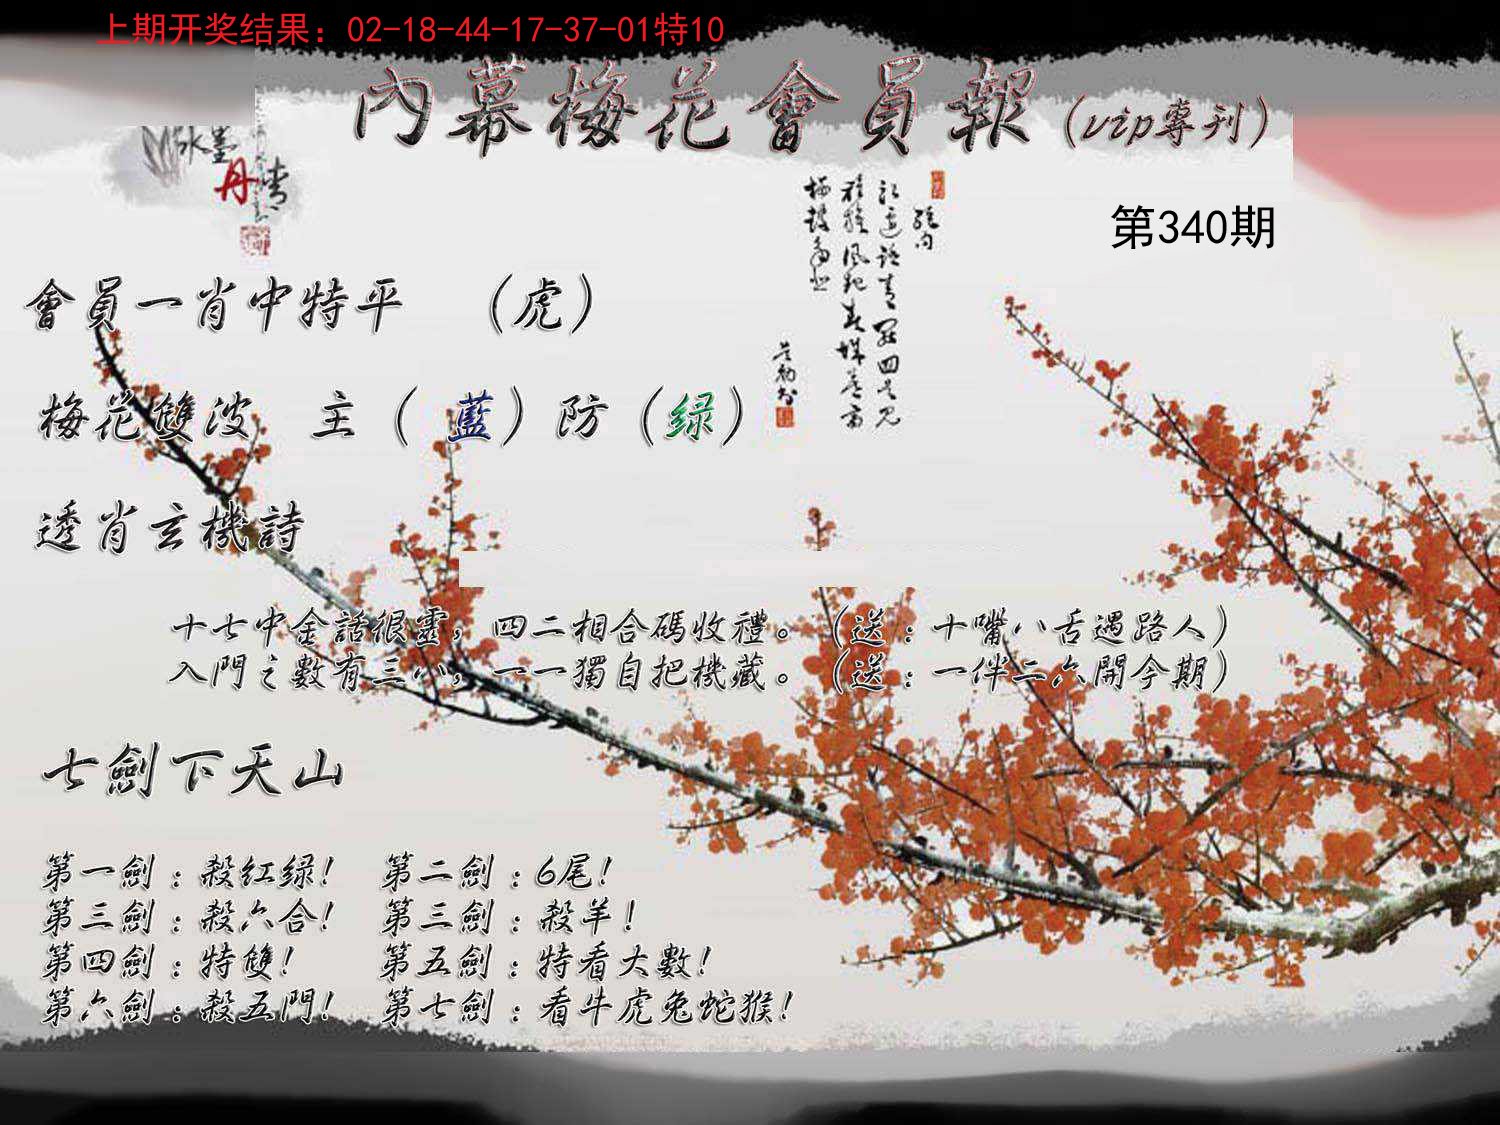 上期开奖结果：02-18-44-17-37-01特10
內幕梅花會員報（vip專刊）
水墨
丹青
第340期
會員一肖中特平　（虎）
梅花雙波　主（藍）防（绿）
透肖玄機詩
十七中金話很靈，四二相合碼收禮。（送：十嘴八舌遇路人）
入門之數有三小，一一獨自把機藏。（送：一伴二六開今期）
七劍下天山
第一劍：殺紅绿！　第二劍：6尾！
第三劍：殺六合！　第三劍：殺羊！
第四劍：特雙！　第五劍：特看大數！
第六劍：殺五門！　第七劍：看牛虎兔蛇猴！